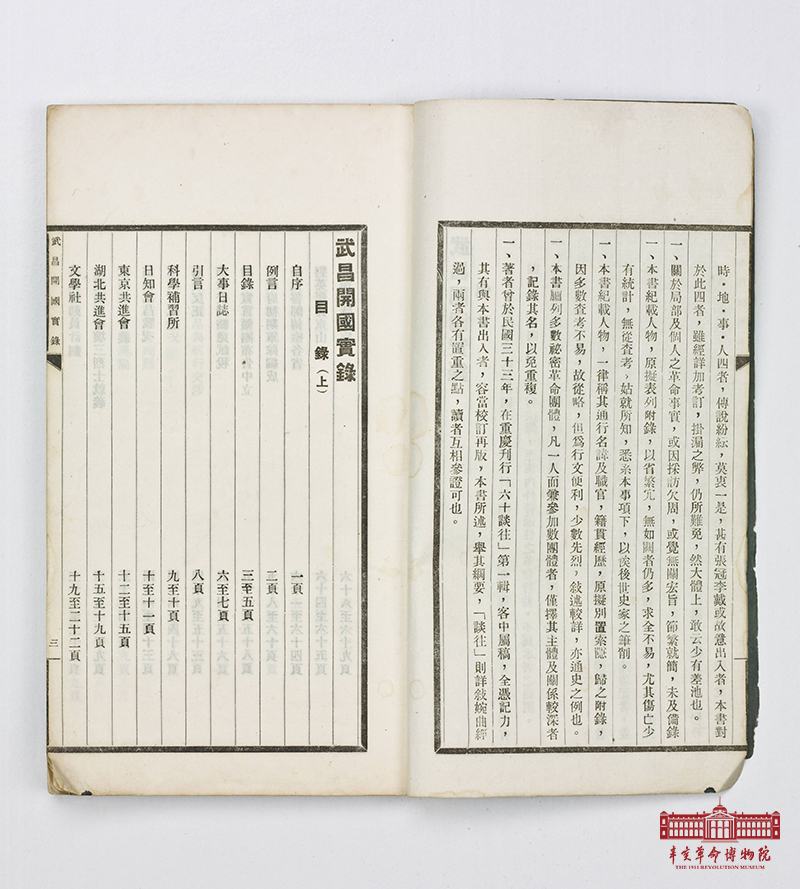 時・地・事・人四者，傳說紛紜，莫衷一是，甚有張冠李戴或故意出入者，本書對
於此四者，雖經詳加考訂，掛漏之弊，仍所難免，然大體上，敢云少有差池也。
一、關於局部及個人之革命事實，或因採訪欠周，或覺無關宏旨，節繁就簡，未及備錄
一、本書紀載人物，原擬表列附錄，以省繁冗，無如闕者仍多，求全不易，尤其傷亡少
有統計，無從查考，姑就所知，悉系本事項下，以俟後世史家之筆削。
一、本書紀載人物，一律稱其通行名諱及職官，籍貫經歷，原擬別置索隱，歸之附錄，
因多數查考不易，故從略，但為行文便利，少數先烈，敍述較詳，亦通史之例也。
一、本書臚列多數祕密革命團體，凡一人而兼參加數團體者，僅擇其主體及關係較深者
，記錄其名，以免重複。
一、著者曾於民國三十三年，在重慶刊行「六十談往」第一輯，客中屬稿，全憑記力，
其有與本書出入者，容當校訂再版，本書所述，舉其綱要，「談往」則詳敍婉曲經
過，兩者各有置重之點，讀者互相參證可也。
武昌開國實錄
目錄（上）
自序 一頁
例言 二頁
目錄 三至五頁
大事日誌 六至七頁
引言 八頁
科學補習所 九至十頁
日知會 十至十一頁
東京共進會 十二至十五頁
湖北共進會 十五至十九頁
文學社 十九至二十二頁
武昌開國實錄
三
辛亥革命博物院
THE 1911 REVOLUTION MUSEUM